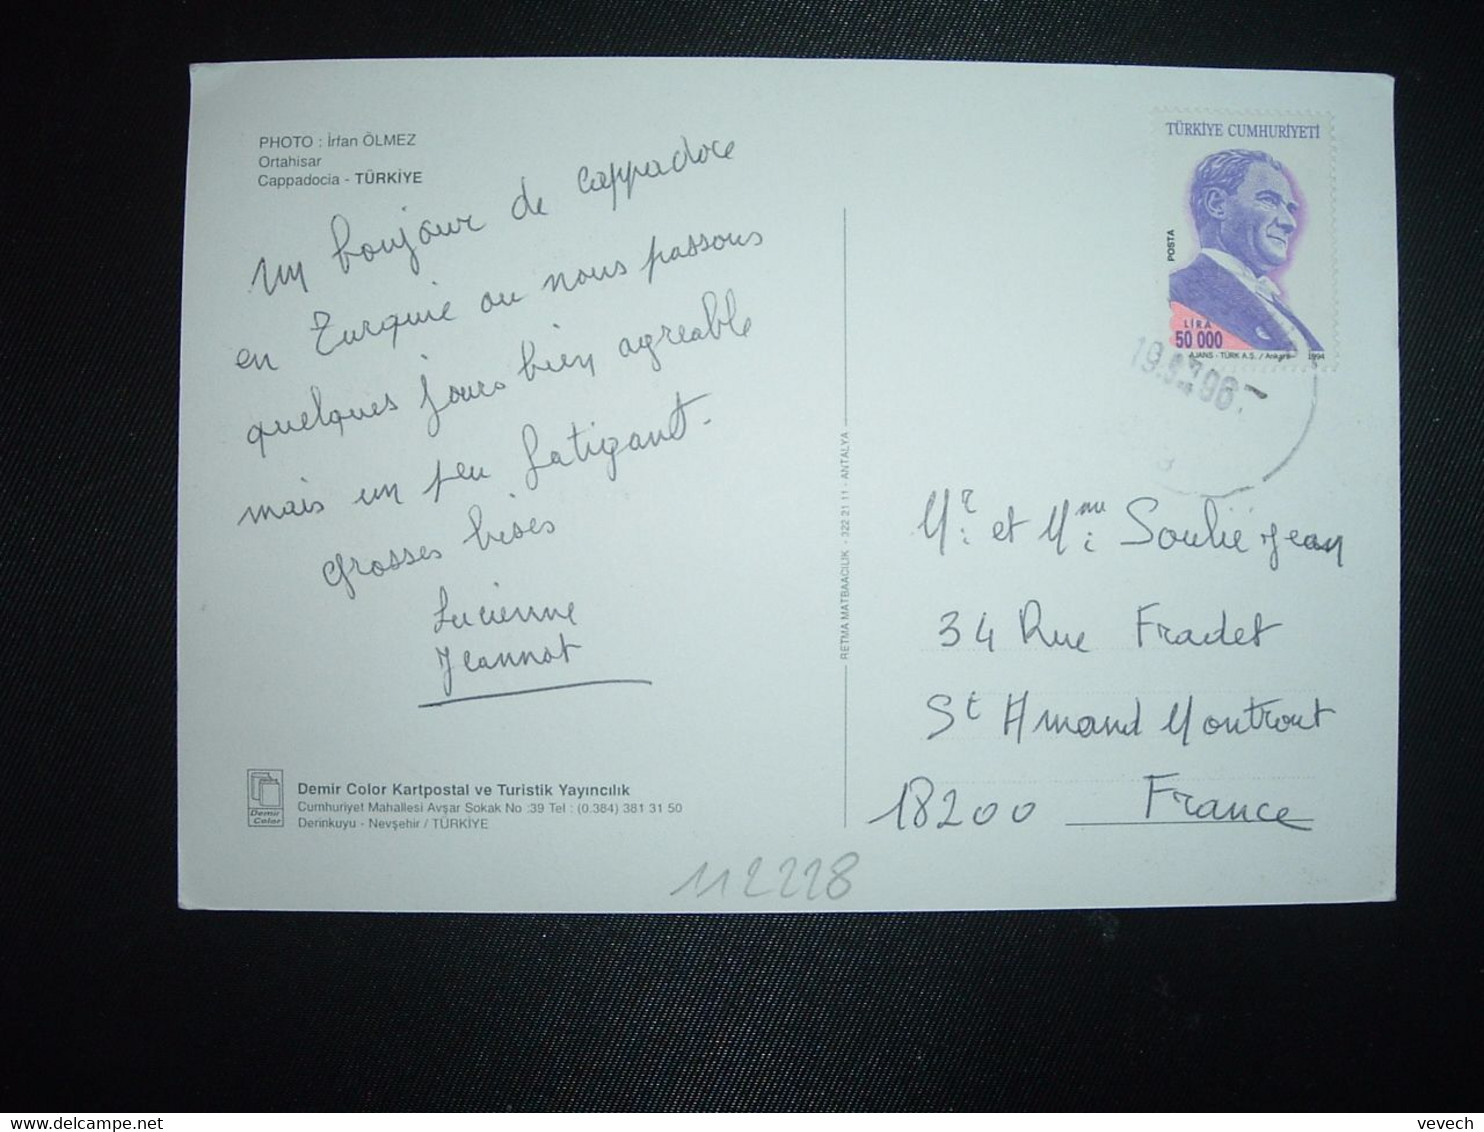 PHOTO : İrfan ÖLMEZ
Ortahisar
Cappadocia - TÜRKİYE
Un bonjour de Cappadoce
en Turquie ou nous passons
quelques jours bien agreable
mais un peu fatigant.
Grosses bises
Lucienne
Jeannot
Demir Color
Demir Color Kartpostal ve Turistik Yayıncılık
Cumhuriyet Mahallesi Avşar Sokak No :39 Tel : (0.384) 381 31 50
Derinkuyu - Nevşehir / TÜRKİYE
RETMA MATBAACILIK - 322 21 11 - ANTALYA
TÜRKİYE CUMHURİYETİ
POSTA
LİRA
50 000
AJANS - TÜRK A.S. / Ankara 1994
Mr et Mme Soulié Jean
34 Rue Fradet
St Amand Montrout
18200 France
112228
vevech